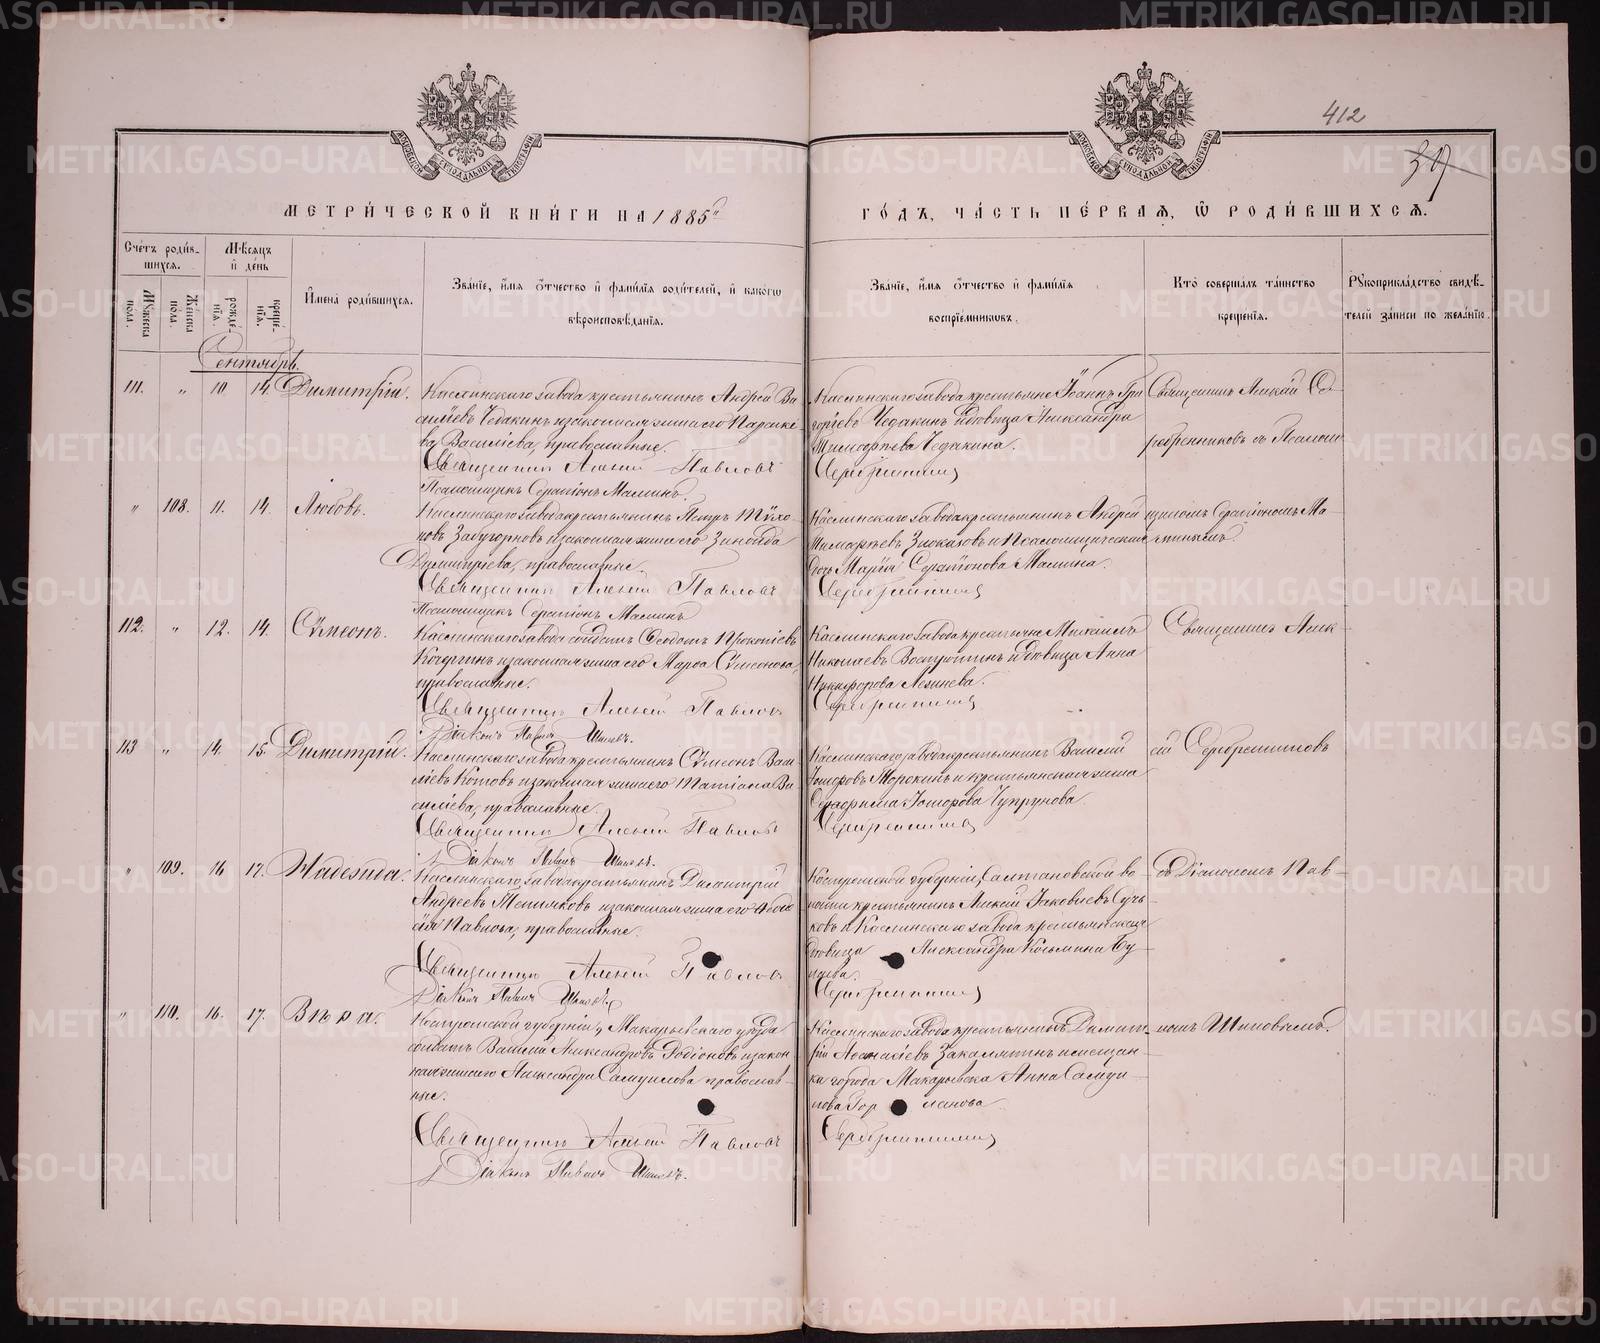 412
39
МЕТРИ́ЧЕСКОЙ КНИ́ГИ НА 1885й
ГО́ДЪ, ЧА́СТЬ ПЕ́РВАЯ, Ѿ РОДИ́ВШИХСЯ.
Счетъ роди́в-
шихся.
Мѣсяцъ
и҆ де́нь
Му́жеска
пола.
Же́нска
пола.
рожде́-
нїя.
креще́-
нїя.
И҆мена̀ роди́вшихся.
Зва́нїе, и҆́мя ѻ҆́тчество и҆ фами́лїя роди́телей, и҆ како́гѡ
вѣроисповѣ́данїя.
Зва́нїе, и҆́мя ѻ҆́тчество и҆ фами́лїя
воспрїе́мниковъ.
Кто̀ соверша́лъ та́инство
креще́нїя.
Рꙋкоприкла́дство свидѣ́-
телей за́писи по жела́нїю.
Сентябрь.
111. " 10 14. Димитрій.
Каслинскаго завода крестьянинъ Андрей Ва-
силіевъ Чедакинъ и законная жена его Параске-
ва Василіева, православные.
Священникъ Алексій Павловъ
Псаломщикъ Серапіонъ Маминъ.
Каслинскаго завода крестьяне Іоаннъ Гри-
горіевъ Чедакинъ и вдовица Александра
Тимофеева Чедакина.
Священникъ Алексій Се-
ребренниковъ съ Псалом-
" 108. 11. 14. Любовь.
Каслинскаго завода крестьянинъ Петръ Тѵхо-
новъ Забугорновъ и законная жена его Зинаида
Димитріева, православные.
Священникъ Алексій Павловъ
Псаломщикъ Серапіонъ Маминъ
Каслинскаго завода крестьянинъ Андрей
Тимофеевъ Злоказовъ и Псаломщическая
дочь Марія Серапіонова Мамина.
щикомъ Серапіономъ Ма-
минымъ.
112. " 12. 14. Сѵмеонъ.
Каслинскаго завода солдатъ Феодотъ Прокопіевъ
и законная жена его Марфа Сѵмеонова,
православные.
Священникъ Алексій Павловъ
Діаконъ Павелъ Шиповъ.
Каслинскаго завода крестьяне Михаилъ
Николаевъ Востротинъ и вдовица Анна
Никифорова
Священникъ Алек-
113 " 14. 15. Димитрій.
Каслинскаго завода крестьянинъ Сѵмеонъ Васи-
ліевъ Котовъ и законная жена его Татіана Ва-
силіева, православные.
Священникъ Алексій Павловъ
Діаконъ Павелъ Шиповъ.
Каслинскаго завода крестьянинъ Василій
Морокинъ и крестьянская жена
Серафима Чупрунова.
сій Серебренниковъ
" 109. 16 17. Надежда.
Каслинскаго завода крестьянинъ Димитрій
Андреевъ и законная жена его
Павлова, православные.
Священникъ Алексій Павловъ
Діаконъ Павелъ Шиповъ.
Костромской губерніи, Салтановской во-
лости крестьянинъ Алексій Іаковлевъ Сучь-
ковъ и Каслинскаго завода крестьянская
вдовица Александра Косьмина Бу-
съ Діакономъ Пав-
" 110. 16. 17. Вѣра.
Костромской губерніи, Макарьевскаго уѣзда
солдатъ Василій Александровъ Родіоновъ и закон-
ная жена его Александра Самуилова православ-
ные.
Священникъ Алексій Павловъ
Діаконъ Павелъ Шиповъ.
Каслинскаго завода крестьянинъ Димит-
рій Закалятинъ и мещан-
ка города Макарьевска Анна Самуи-
лова
ломъ Шиповымъ.